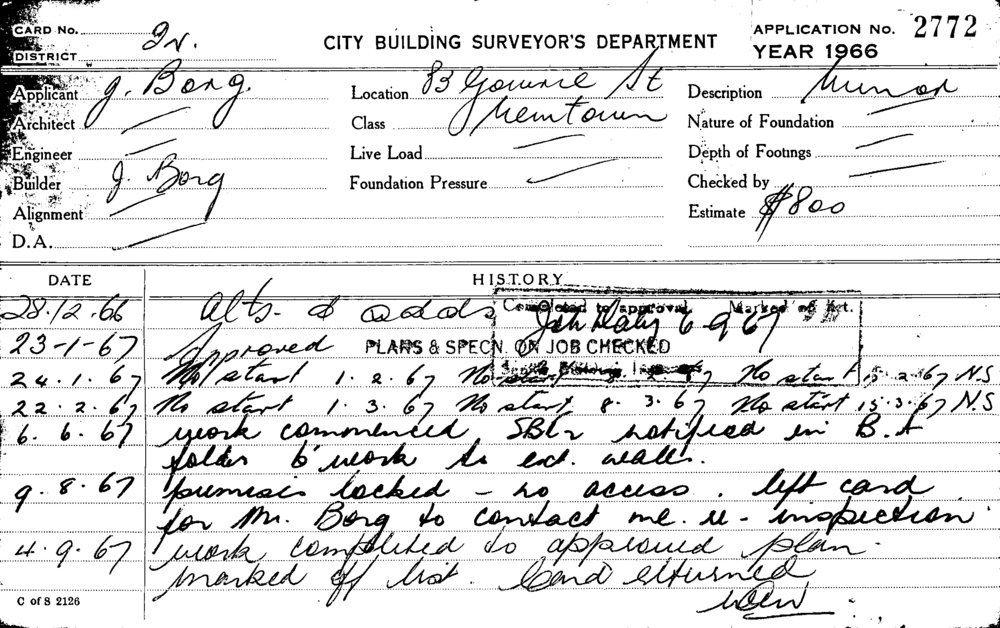 CARD No. 2w.
DISTRICT
CITY BUILDING SURVEYOR'S DEPARTMENT
APPLICATION No. 2772
YEAR 1966
Applicant J. Borg.
Location 83 Gowrie St
Description Minor
Architect —
Class Newtown
Nature of Foundation —
Engineer —
Live Load —
Depth of Footings —
Builder J. Borg
Foundation Pressure —
Checked by —
Alignment —
Estimate $800
D.A. —
DATE HISTORY
28.12.66 Alts. & adds
Completed to approval Marked off list.
Joh Daly 6 9 67
23-1-67 Approved PLANS & SPECN. ON JOB CHECKED
24.1.67 No start 1.2.67 No start 8.2.67 No start 15.2.67 N.S
22.2.67 No start 1.3.67 No start 8.3.67 No start 15.3.67 N.S
6.6.67 work commenced notified in B.A
folder work to ext. walls.
9.8.67 premises locked - no access. left card
for Mr. Borg to contact me. re - inspection.
4.9.67 work completed to approved plan.
marked off list. Card returned
C of S 2126